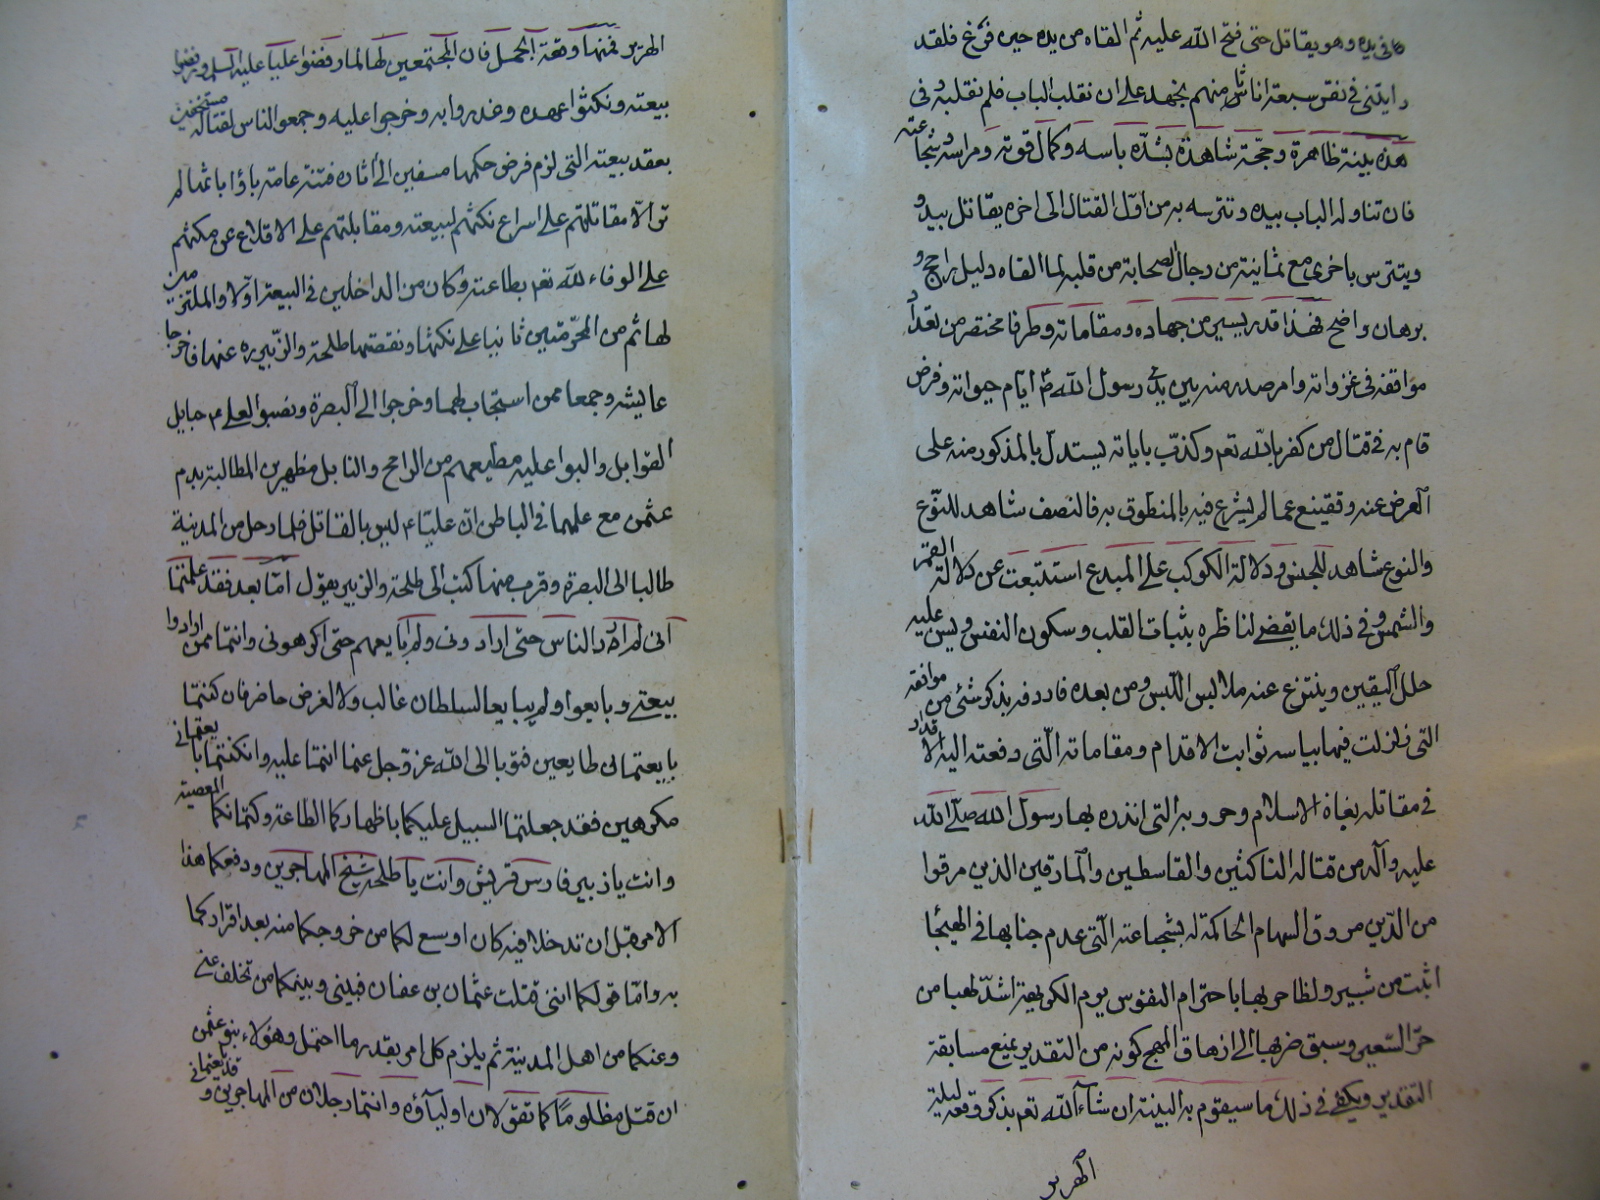 في يده وهو يقاتل حتى فتح الله عليه ثم القاه من يده حين فرغ فلقد
رايتني في نفر سبعة اناثا منهم نجهد على ان نقلب الباب فلم نقلبه وفي
هذه بينة ظاهرة وحجة شاهدة بشدّة باسه وكمال قوته ومراسه وشجاعته
فان تناوله الباب بيده وتترسه به من اوّل القتال الى اخره يقاتل بيد و
ويتترس باخرى مع ثمانية من رجال الصحابة من قلبه لما القاه دليل راجح و
برهان واضح فهذا قدر يسير من جهاده ومقاماته وطرفا مختصر من تعداد
مواقفه في غزواته وامر صدر منه بين يدي رسول الله ص ايّام حيوته وفرض
قام به في قتال من كفر بالله تعم وكذّب باياته يستدلّ بالمذكور منه على
العرض عنه وقتينع عما لم يشرع فيه بالمنطوق به فالنصف شاهد للنّوع
والنوع شاهد للجنس ودلالة الكوكب على المبدع استتبعت عن دلالة القمر
والشمس وفي ذلك ما يقضي لناظره بثبات القلب وسكون النفس وليس عليه
حلل اليقين وينتزع عنه ملابس اللّبس ومن بعده فاردفه بذكر شئ من مواقفه
التي زلزلت فيها بباسه ثوابت الاقدام ومقاماته الّتي دفعته اليه الاقدار
في مقاتله بغاة الاسلام وحروبه التي انذره بها رسول الله صلّى الله
عليه وآله من قتاله الناكثين والقاسطين والمارقين الذين مرقوا
من الدّين مروق السهام الحاكمة له بشجاعته الّتي عدم جنابها في الهيجا
اثبت من ثبير ولظا حربها باحترام النفوس يوم الكريهة اشدّ لهبا من
حرّ السّعير وسبق ضربها الى ازهاق المهج كونه من التقدير يمنع مسابقة
التقدير ويكفي في ذلك ما سيقوم به البينة ان شآء الله تعم بذكر وقعة ليلة
الهرير
الهرير فمنها وقعة الجمل فان المجتمعين لها لما رفضوا عليا عليه السلم ونقضوا
بيعته ونكثوا عهده وغدروا به وخرجوا عليه وجمعوا الناس لقتاله مستخفين
بعقد بيعته التي لزم فرض حكمها مسفين الى اثارة فتنة عامة باؤا باثمها لم
تر الّا مقاتلتهم على اسراع نكثهم لبيعته ومقابلتهم على الاقلاع عن مكثهم
على الوفاء لله تعم بطاعته وكان من الداخلين في البيعة اولا والملتزمين
لها ثم من المحرّضين ثانيا على نكثها ونقضها طلحة والزّبير فاخرجا
عايشه وجمعا ممن استجاب لهما وخرجوا الى البصرة ونصبوا لعلي ع حبايل
الغوايل والبوا عليه مطيعهم من الرامح والنابل مظهرين المطالبة بدم
عثمن مع علمهما في الباطن انّ عليّا ع ليس بالقاتل فلما رحل من المدينة
طالبا الى البصرة وقرب منها كتب الى طلحة والزبير يقول امّا بعد فقد علمتما
انى لم ارد الناس حتّى ارادونى ولم ابايعهم حتّى اكرهونى وانتما ممن ارادوا
بيعتي وبايعوا ولم يبايعا لسلطان غالب ولا لغرض حاضر فان كنتما
بايعتمانى طايعين فتوبا الى الله عزّ وجل عما انتما عليه وان كنتما بايعتمانى
مكرهين فقد جعلتما السبيل عليكما باظهاركما الطاعة وكتمانكما المعصية
وانت يا زبير فارس قريش وانت يا طلحة شيخ المهاجرين ودفعكما هذا
الامر قبل ان تدخلا فيه كان اوسع لكما من خروجكما منه بعد اقراركما
به وامّا قولكما اننى قتلت عثمان بن عفان فبيني وبينكما من تخلف عني
وعنكما من اهل المدينة ثم يلزم كل امر بقدر ما احتمل وهؤلاء بنو عثمن
ان قتل مظلومًا كما تقولان اوليآؤه وانتما رجلان من المهاجرين وقد بايعتماني و